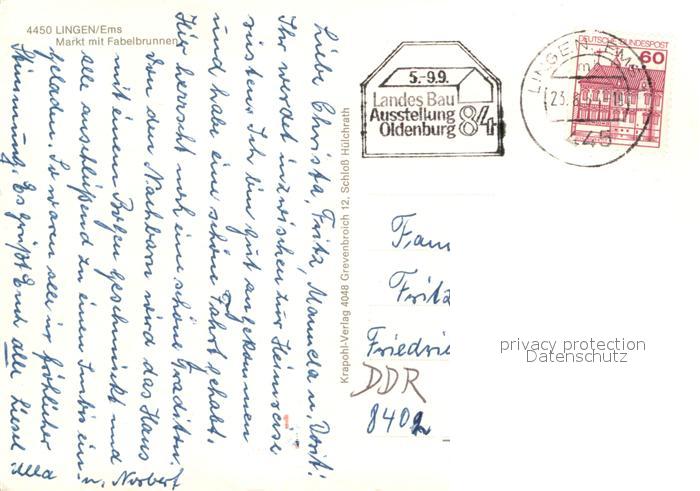 4450 LINGEN/Ems
Markt mit Fabelbrunnen
Liebe Christa, Fritz, Manuela u. Dorit!
Ihr werdet inzwischen zur Heimreise
rüsten. Ich bin gut angekommen
und habe eine schöne Fahrt gehabt.
Hier herrscht noch eine schöne Tradition.
Von den Nachbarn wird das Haus
mit einem Bogen geschmückt und
alle anschließend zu einem Imbiß ein-
geladen. So waren alle in fröhlicher
Stimmung. Es grüßt Euch alle Liesel
u. Norbert
Krapohl-Verlag 4048 Grevenbroich 12, Schloß Hülchrath
5.-9.9.
Landes Bau
Ausstellung
Oldenburg 84
LINGEN, EMS
445
DEUTSCHE BUNDESPOST
60
Fam
Fritz
Friedrie
DDR
8402
privacy protection
Datenschutz